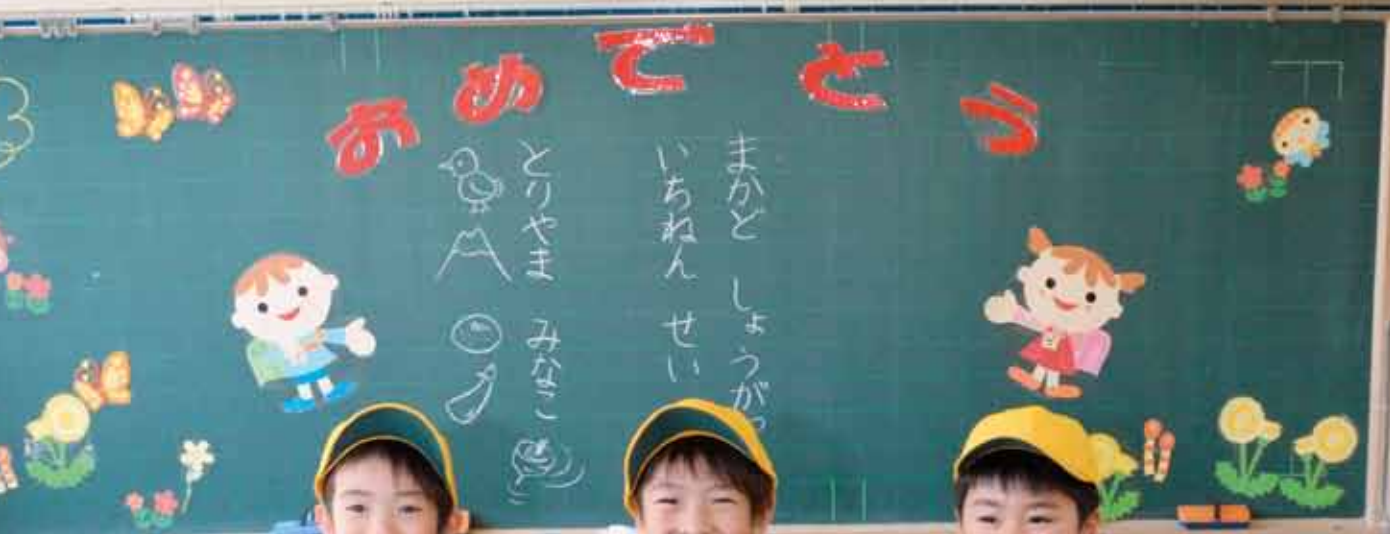 おめでとう
まかど しょうがっ
いちねん せい
とりやま みなこ